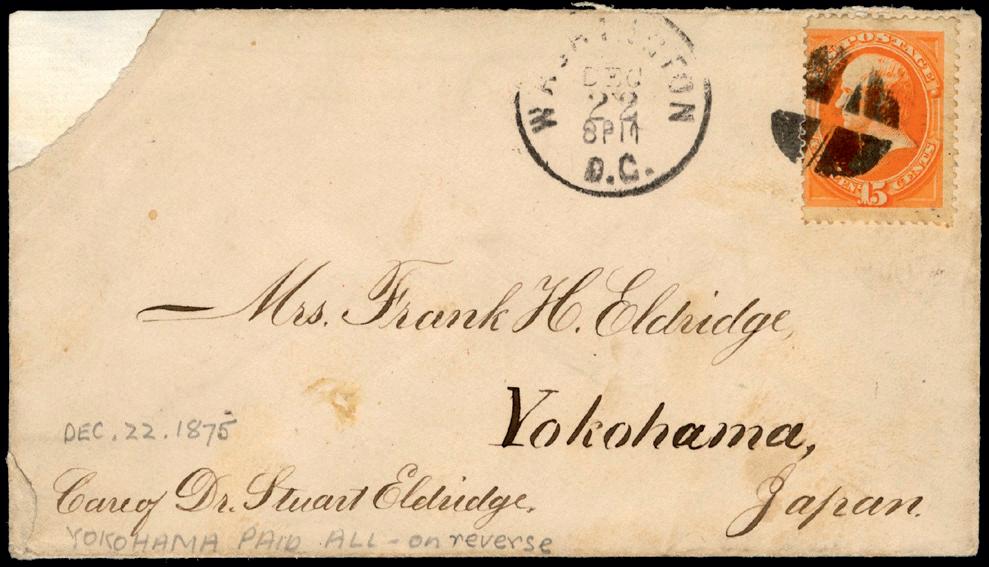 WASHINGTON
DEC
22
8PM
D.C.
POSTAGE
15
CENTS
Mrs. Frank H. Eldridge,
Yokohama,
DEC. 22. 1875
Care of Dr. Stuart Eldridge.
Japan.
YOKOHAMA PAID ALL - on reverse